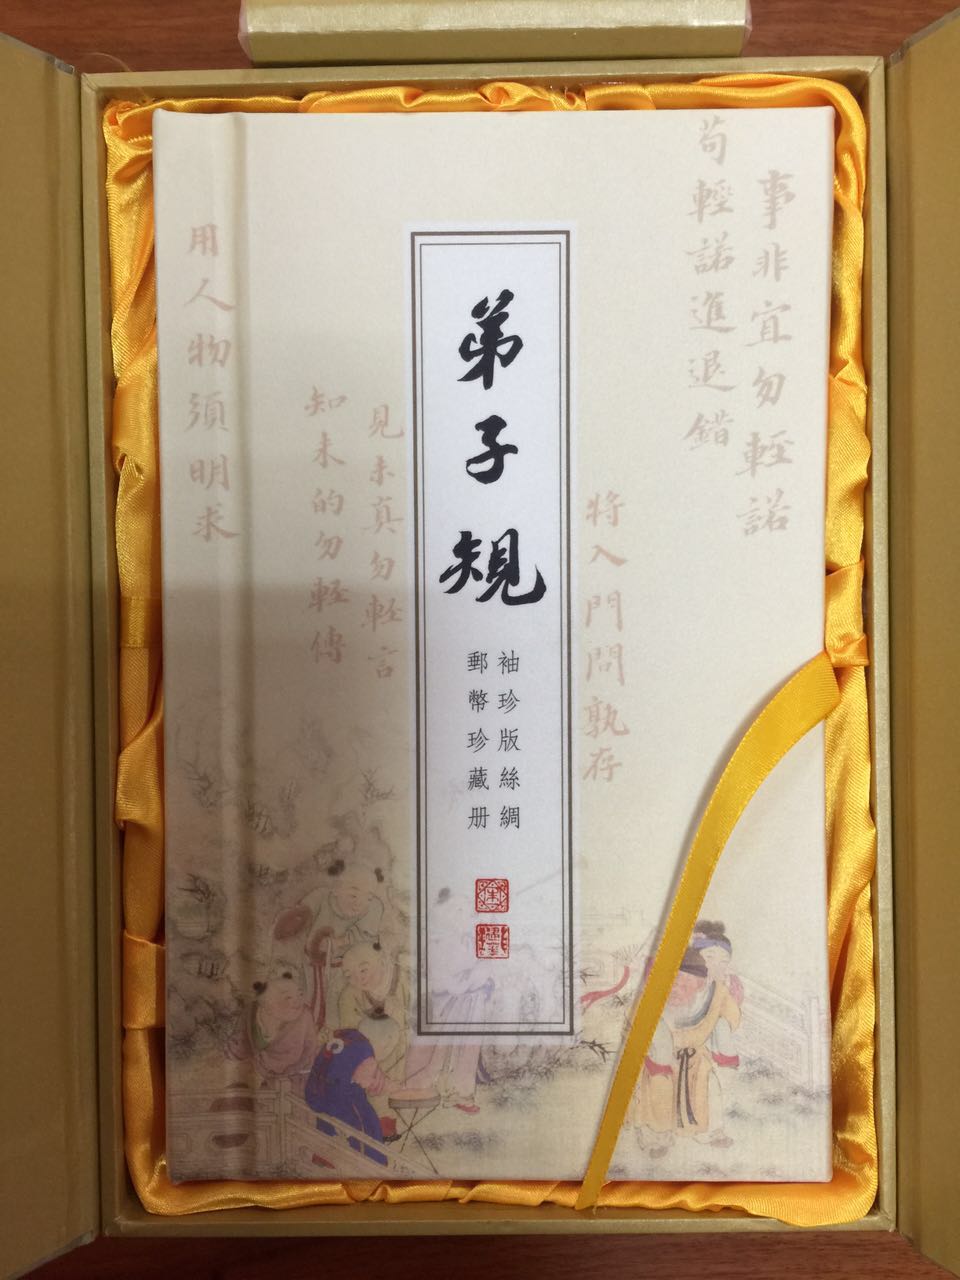 事非宜勿輕諾
苟輕諾進退錯
将入門問孰存
弟子規
袖珍版絲綢
郵幣珍藏册
見未真勿輕言
知未的勿輕傳
用人物須明求